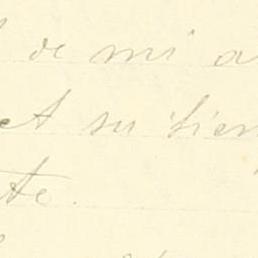 de mi a
et su bien
te.